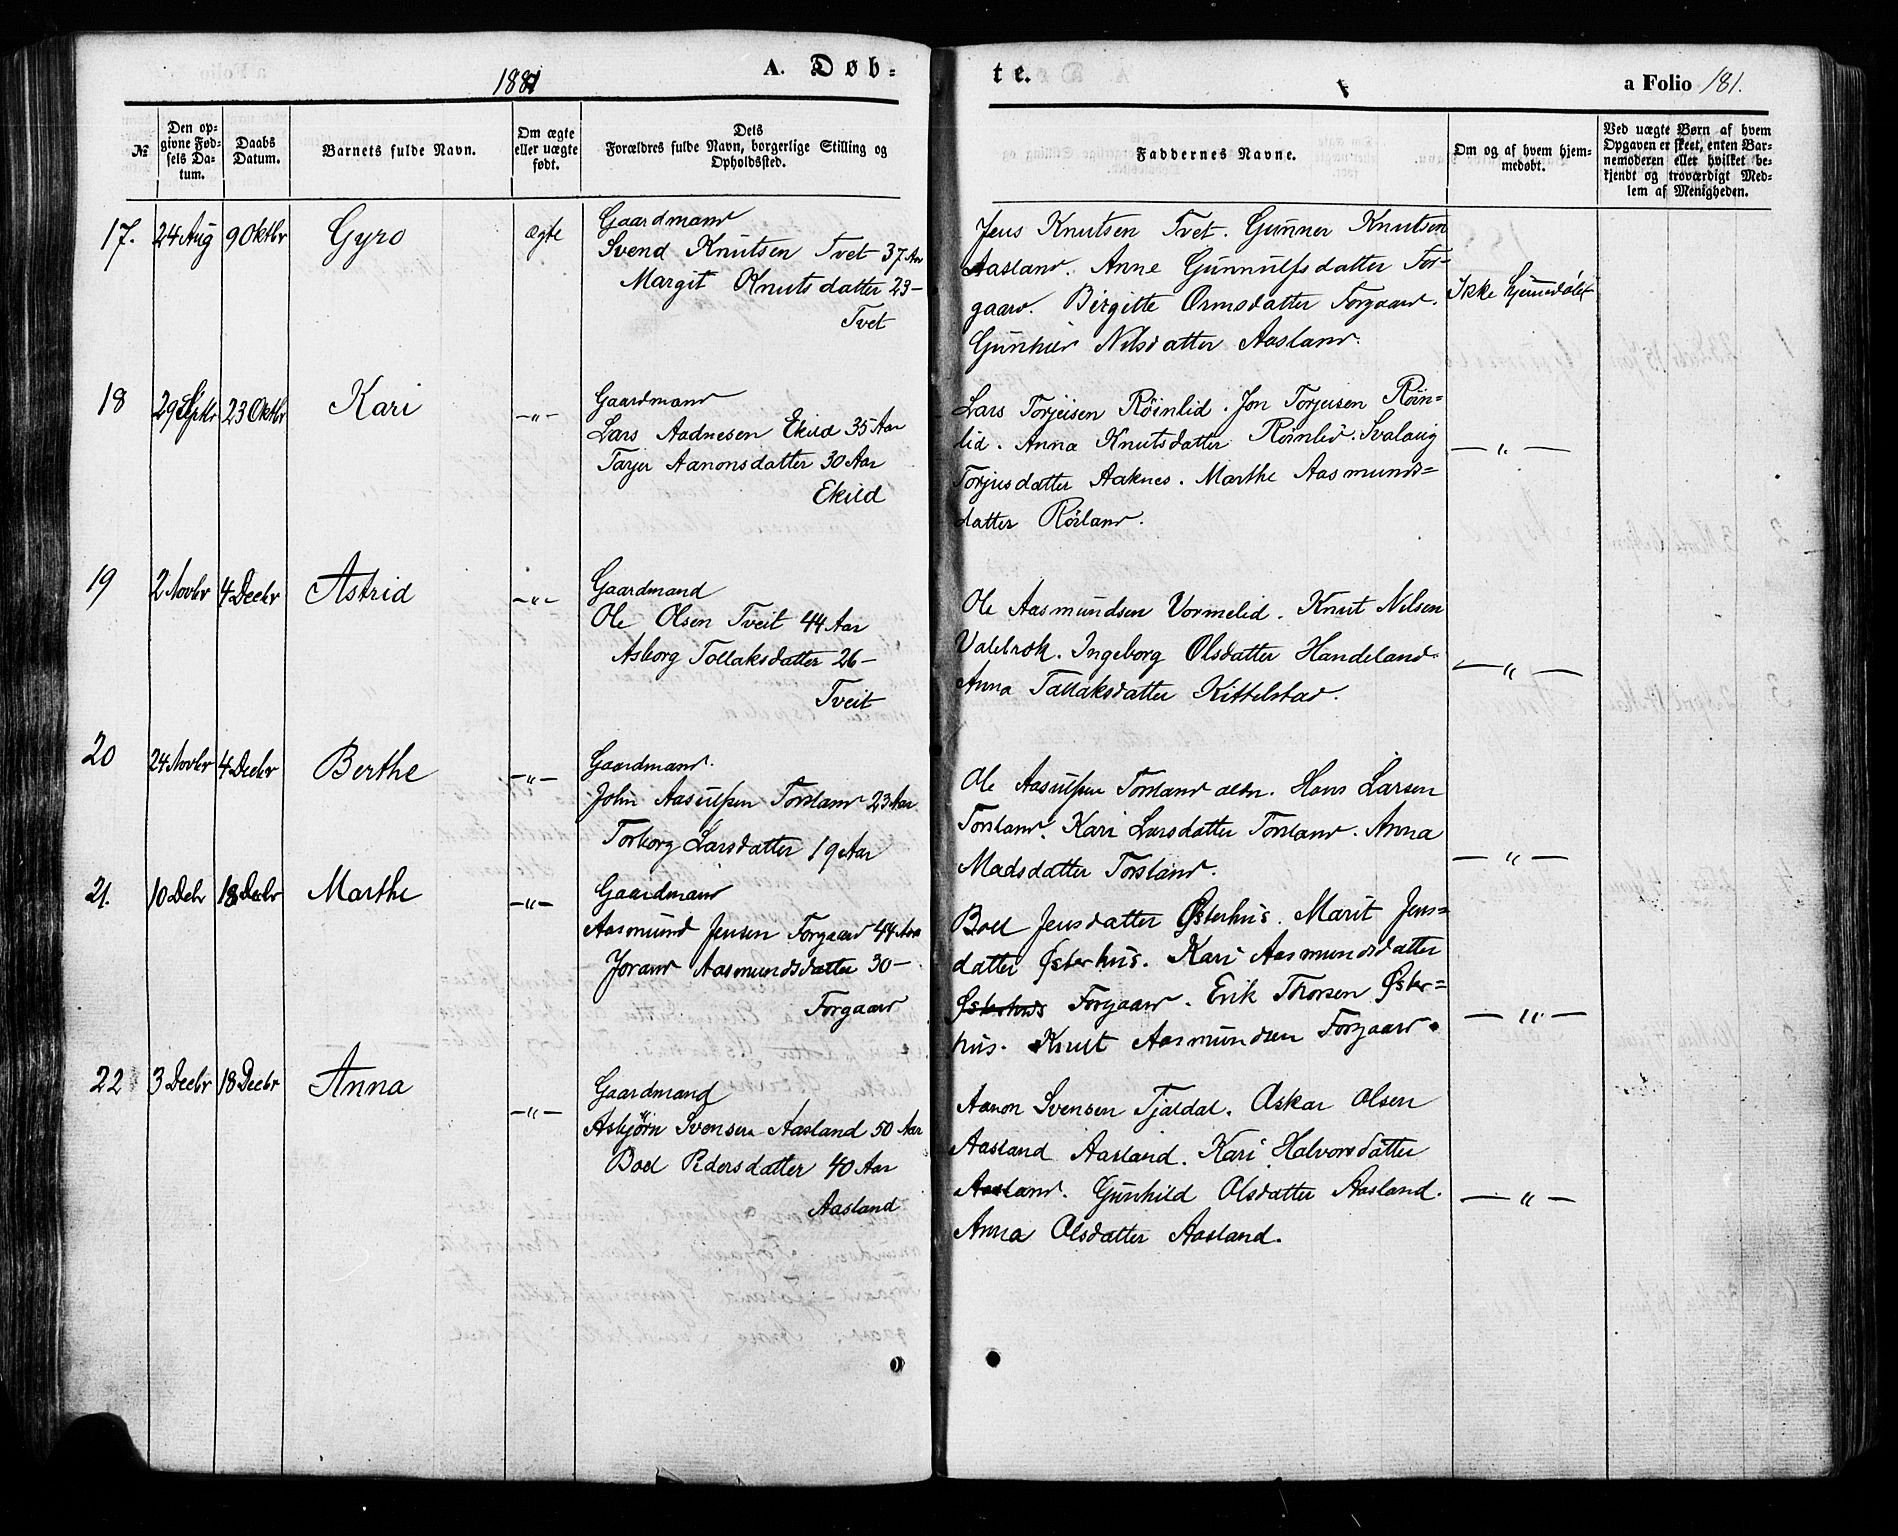 1881
A. Døb-
№
Den op-
givne Fød-
sels Da-
tum.
Daabs
Datum.
Barnets fulde Navn.
Om ægte
eller uægte
født.
Dets
Forældres fulde Navn, borgerlige Stilling og
Opholdssted.
17. 24 Aug 9 Oktbr Gyro ægte
Gaardmand
Svend Knutsen Tvet 37 Aar
Margit Knutsdatter 23 —
Tvet
18 29 Septbr 23 Oktbr Kari —"—
Gaardmand
Lars Aadnesen Ekild 35 Aar
Tarjer Aanonsdatter 30 Aar
Ekild
19 2 Novbr 4 Decbr Astrid —"—
Gaardmand
Ole Olsen Tveit 44 Aar
Asborg Tollaksdatter 26 —
Tveit
20 24 Novbr 4 Decbr Berthe —"—
Gaardmand.
John Aasulfsen Torsland 23 Aar
Torborg Larsdatter 19 Aar
21. 10 Debr 18 Decbr Marthe —"—
Gaardmand
Aasmund Jensen Forgaard 44 Aar
Jorand Aasmundsdatter 30 —
Forgaard
22 3 Decbr 18 Decbr Anna —"—
Gaardmand
Asbjørn Svensen Aasland 50 Aar
Boel Pedersdatter 40 Aar
Aasland
te.
a Folio 181.
Faddernes Navne.
Om og af hvem hjem-
medøbt.
Ved uægte Børn af hvem
Opgaven er skeet, enten Bar-
nemoderen eller hvilket be-
kjendt og troværdigt Med-
lem af Menigheden.
Jens Knutsen Tvet. Gunner Knutsen
Aasland. Anne Gunnulfsdatter For-
gaard. Birgitte Ormsdatter Forgaard.
Gunhild Nilsdatter Aasland.
Ikke hjemmedøbt
Lars Torjeisen Röinlid. Jon Torjeisen Röin-
lid. Anna Knutsdatter Röinlid. Svalaug
Torjusdatter Aaknes. Marthe Aasmunds=
datter Röiland.
—"—
Ole Aasmundsen Vormelid. Knut Nilsen
Valebrok. Ingeborg Olsdatter Handeland.
Anna Tallaksdatter Kittelstad.
—"—
Ole Aasulfsen Torsland ældr. Hans Larsen
Torsland. Kari Larsdatter Torsland. Anna
Madsdatter Torsland.
—"—
Boel Jensdatter Østerhus. Marit Jens=
datter Østerhus. Kari Aasmundsdatter
Østerhus Forgaard. Erik Thorsen Øster=
hus. Knut Aasmundsen Forgaard.
—"—
Aanon Svensen Tjaldal. Oskar Olsen
Aasland Aasland. Kari Halvorsdatter
Aasland. Gunhild Olsdatter Aasland.
Anna Olsdatter Aasland.
—"—